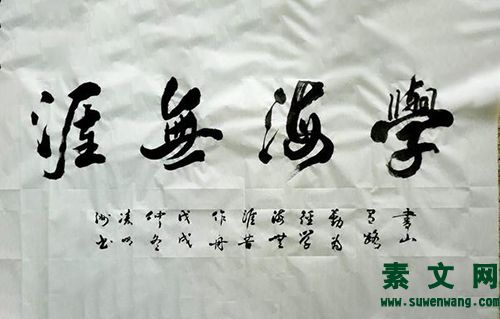 學海無涯
書山
有路
勤为
径学
海無
涯苦
作舟
戊戌
仲冬
书
素文网
www.suwenwang.com